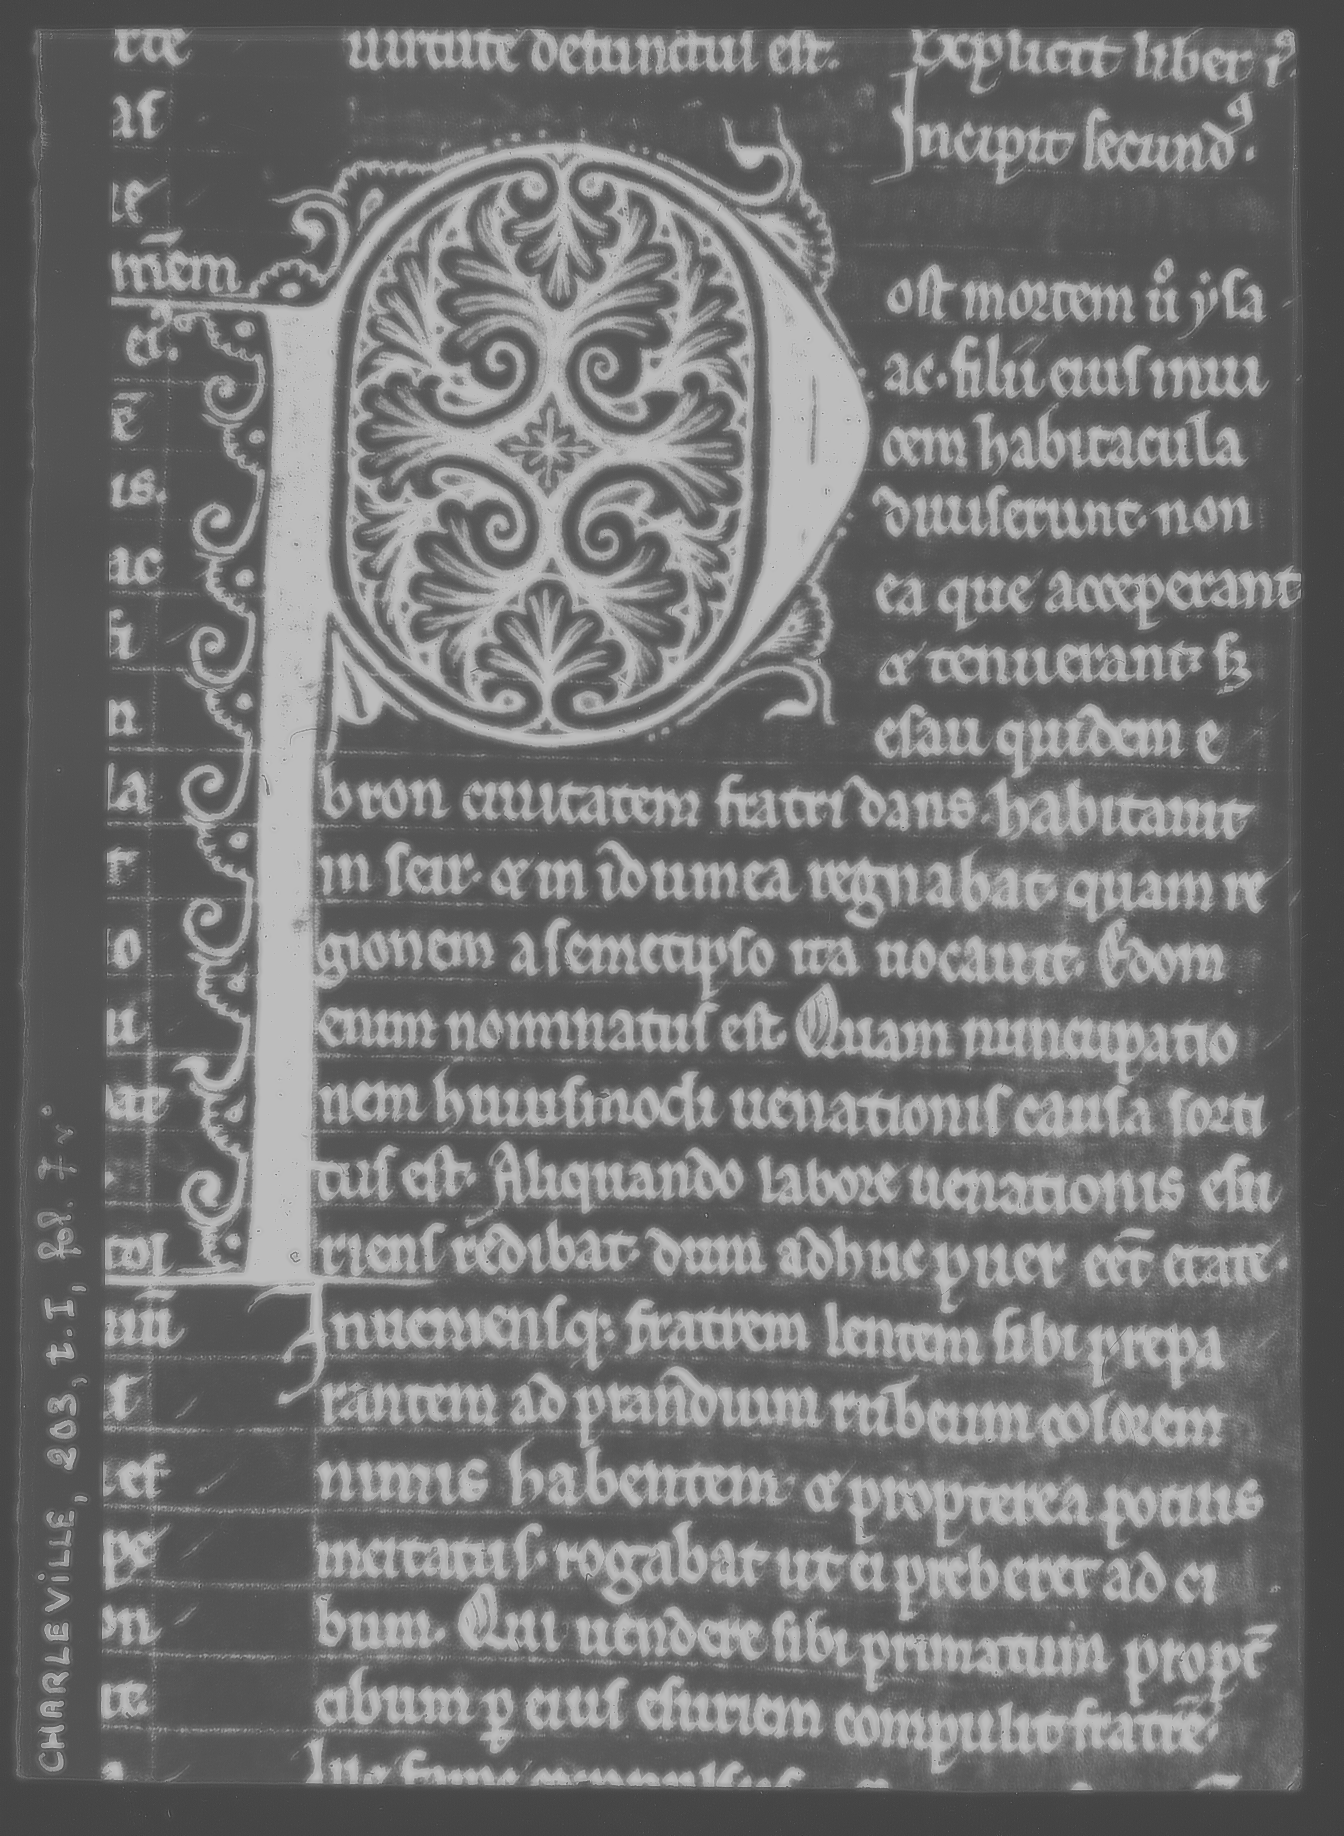 rte
as
te
mēm
ei.
ē
us.
ac
fi
n
la
t
o
u
ate
tol
uiū
t
es
pe
on
te
a
uirtute defunctus est.
Explicit liber i⁹.
Incipit secund⁹.
Post mortem ů ẏsa
ac. filii eius inui
cem habitacula
diuiserunt. non
ea que acceperant
& tenuerant. sꝫ
esau quidem e
bron ciuitatem fratri dans. habitauit
in seir. & in idumea regnabat. quam re
gionem a semetipso ita uocauit. Edom
enim nominatus est. Quam nuncupatio
nem huiusmodi uenationis causa sorti
tus est. Aliquando labore uenationis esu
riens redibat. dum adhuc puer eēt etate.
Inueniensq; fratrem lentem sibi prepa
rantem ad prandium rubeum colorem
nimis habentem & propterea potius
incitatus. rogabat ut ei preberet ad ci
bum. Qui uendere sibi primatum propt̄
cibum ꝑ eius esuriem compulit fratrē.
Ille fame compulsus
CHARLEVILLE, 203, t. I, fol. 7 vº